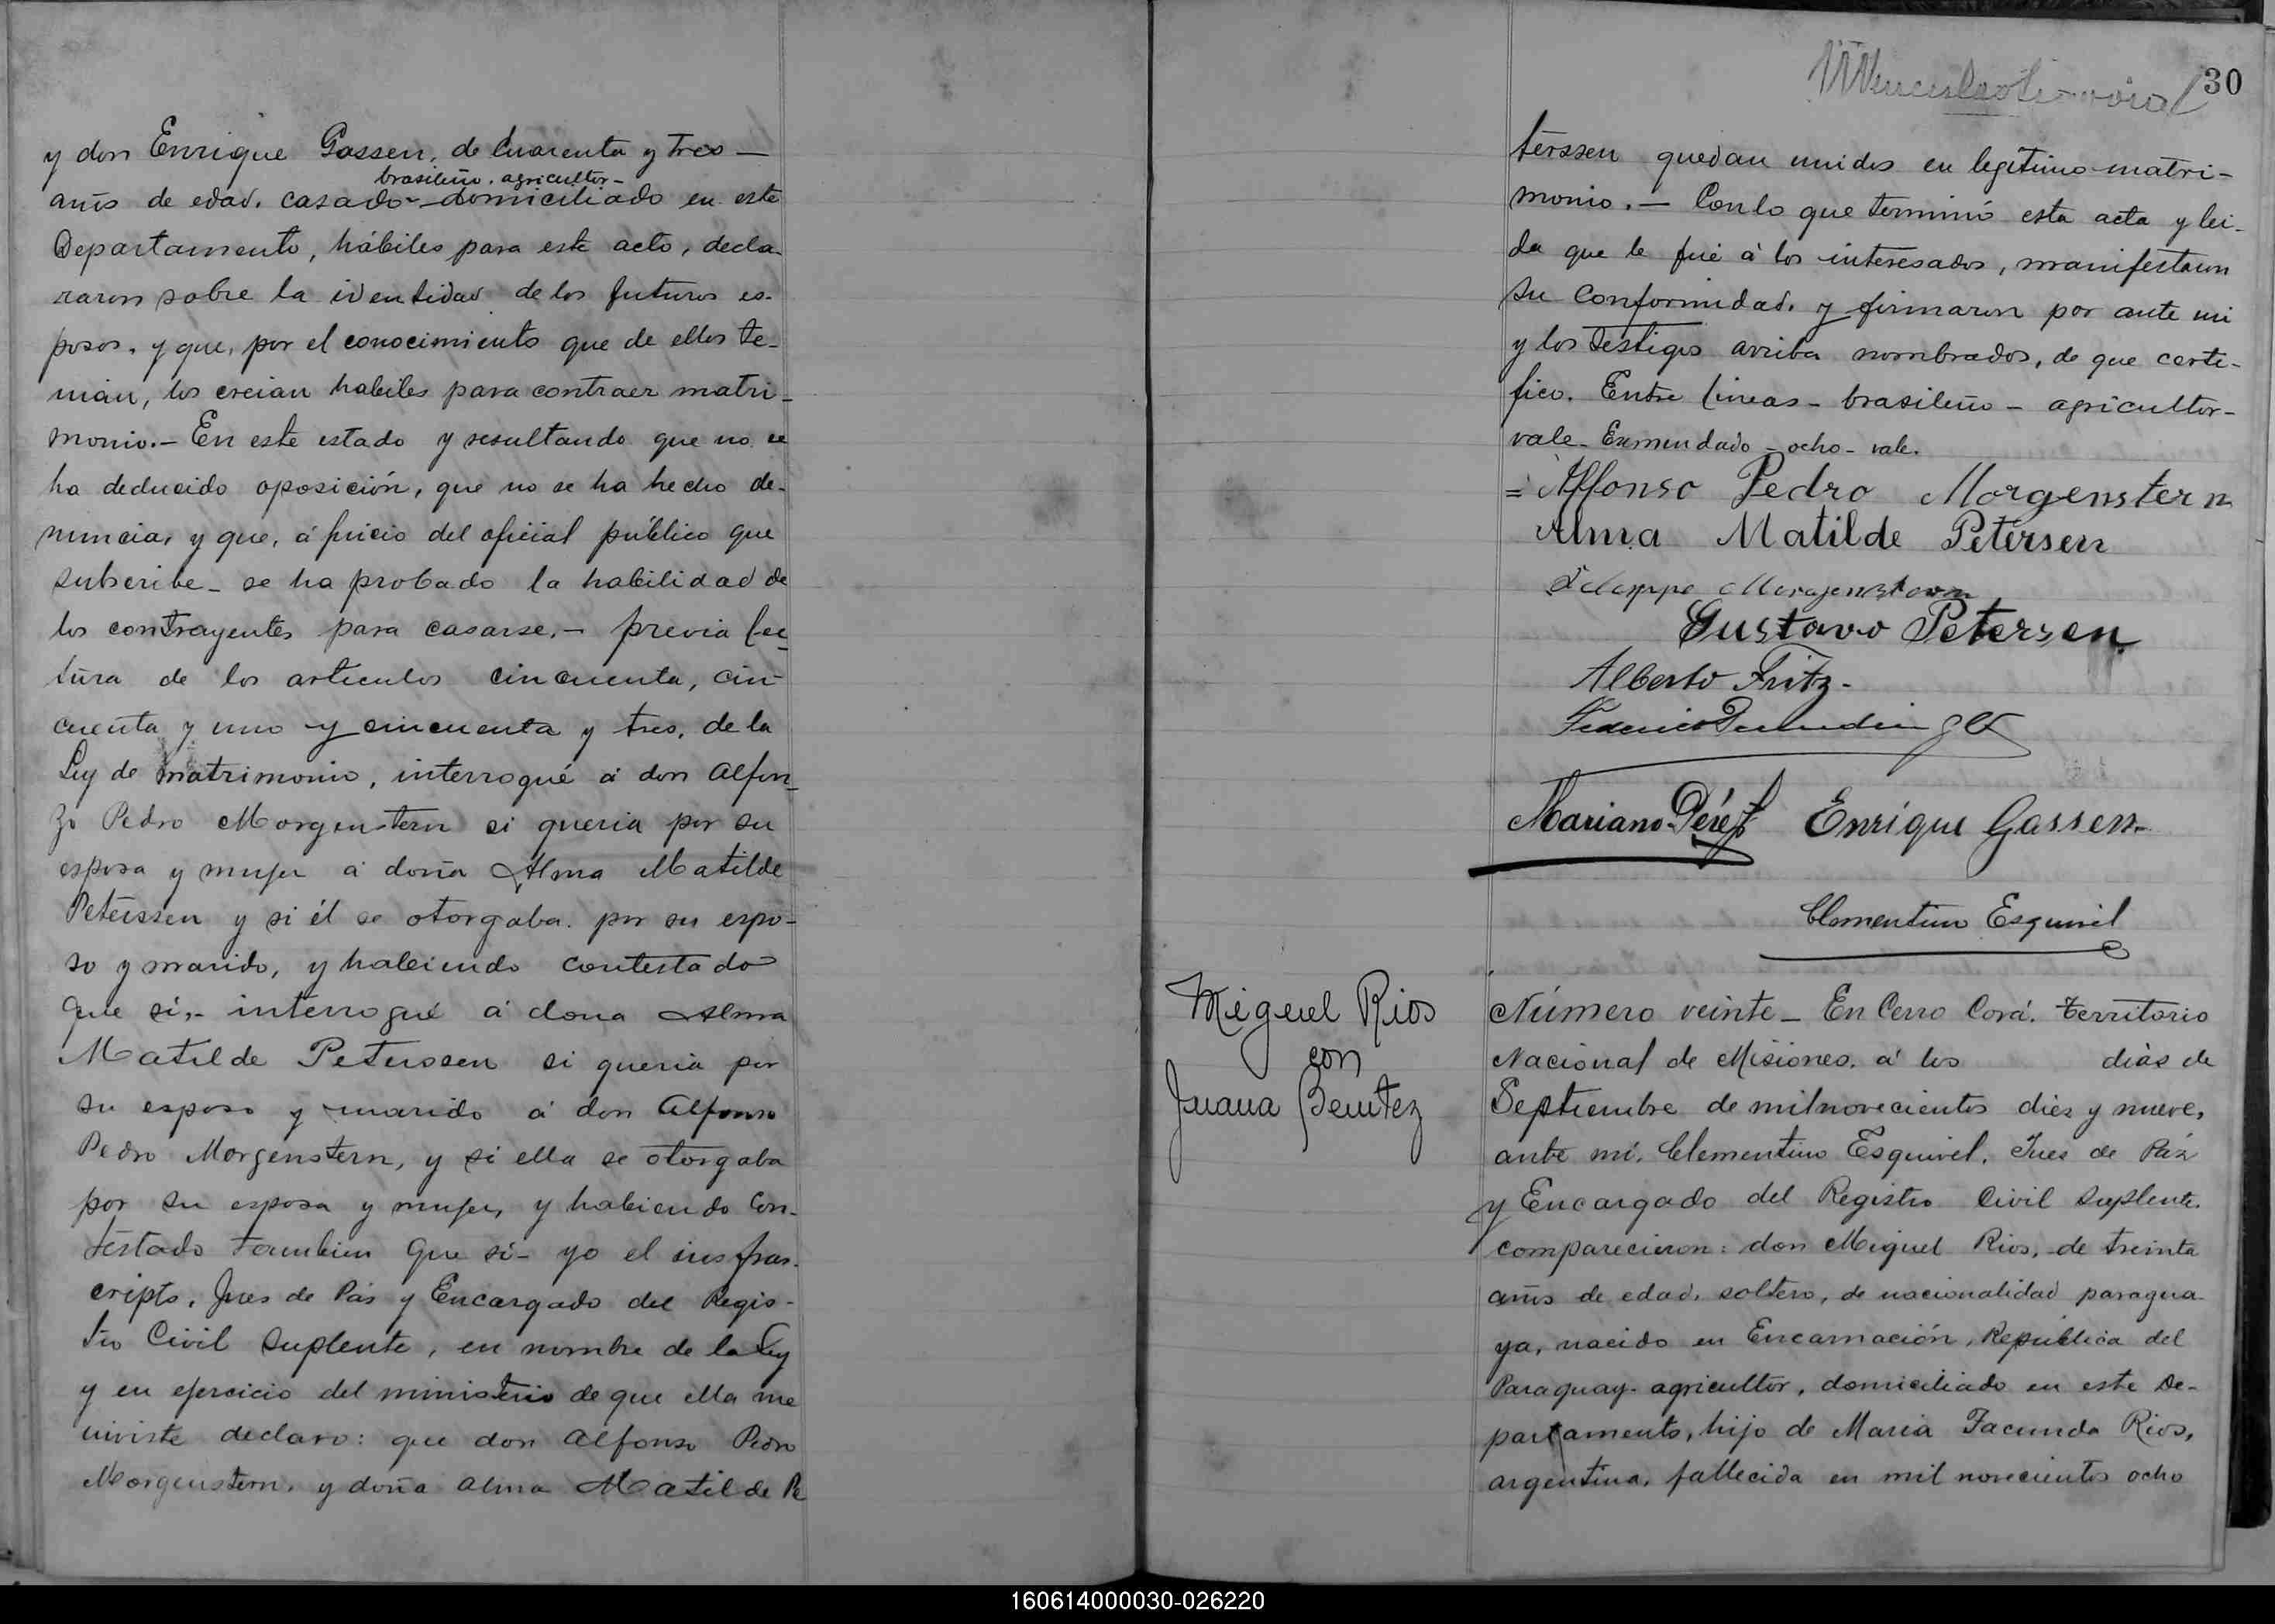 y don Enrique Gassen, de cuarenta y tres —
brasileño. agricultor-
años de edad. casado - domiciliado en este
Departamento, hábiles para este acto, decla-
raron sobre la identidad de los futuros es-
posos, y que, por el conocimiento que de ellos te-
nian, los creian habiles para contraer matri-
monio.- En este estado y resultando que no se
ha deducido oposición, que no se ha hecho de-
nuncia, y que, á juicio del oficial público que
subscribe - se ha probado la habilidad de
los contrayentes para casarse.- previa lec-
tura de los articulos cincuenta, cin-
cuenta y uno y cincuenta y tres, de la
Ley de matrimonio, interrogué á don Alfon-
zo Pedro Morgenstern si queria por su
esposa y mujer á doña Alma Matilde
Peterssen y si él se otorgaba por su espo-
so y marido, y habiendo contestado
que si,- interrogué á dona Alma
Matilde Peterssen si queria por
su esposo y marido á don Alfonso
Pedro Morgenstern, y si ella se otorgaba
por su esposa y mujer, y habiendo con-
testado tambien que si- yo el insfras-
cripto, Jues de Pás y Encargado del Regis-
tro Civil Suplente, en nombre de la Ley
y en ejercicio del ministerio de que ella me
inviste declaro: que don Alfonso Pedro
Morgenstern, y doña Alma Matilde Pe
30
terssen quedan unidos en legítimo matri-
monio. — Con lo que terminó esta acta y lei-
da que le fué á los interesados, manifestaron
su conformidad, y firmaron por ante mi
y los testigos arriba nombrados, de que certi-
fico. Entre lineas - brasileño - agricultor-
vale - Enmendado - ocho - vale.
= Affonso Pedro Morgenstern
Alma Matilde Petersen
Morgenstern
Gustavo Petersen
Alberto Fritz-
Federico
Mariano Pérez Enrique Gassen-
Clementino Esquivel
Miguel Rios
con
Juana Benitez
Número veinte - En Cerro Corá, territorio
Nacional de Misiones, á los dias de
Septiembre de mil novecientos dies y nueve,
ante mí, Clementino Esquivel, Jues de Páz
y Encargado del Registro Civil Suplente,
comparecieron: don Miguel Rios, de treinta
años de edad, soltero, de nacionalidad paragua-
ya, nacido en Encarnación, República del
Paraguay- agricultor, domiciliado en este De-
partamento, hijo de Maria Facunda Rios,
argentina, fallecida en mil novecientos ocho
160614000030-026220